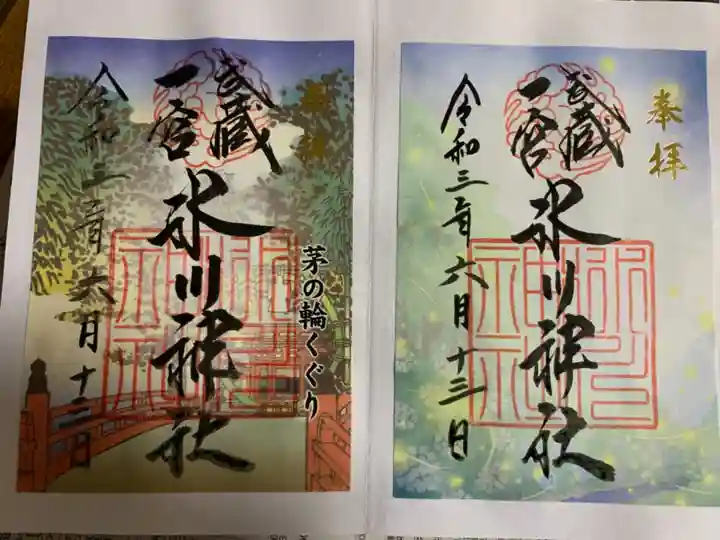 奉拝
武蔵
一宮
氷川神社
茅の輪くぐり
令和三年六月十三日
奉拝
武蔵
一宮
氷川神社
令和三年六月十三日